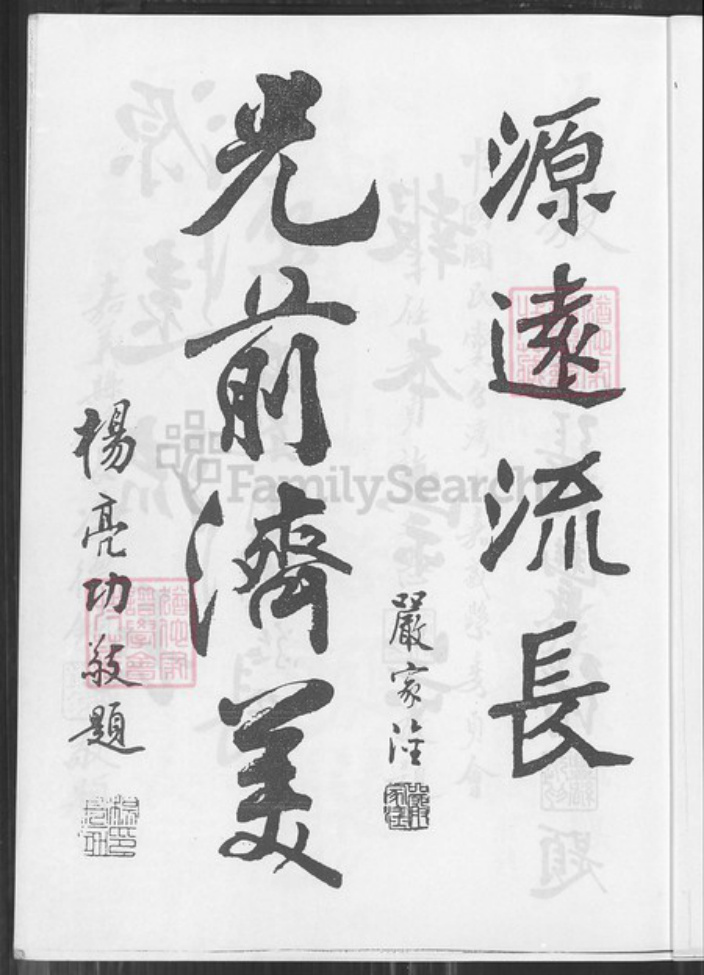 源遠流長
嚴家淦
光前濟美
楊亮功敬題
FamilySearch